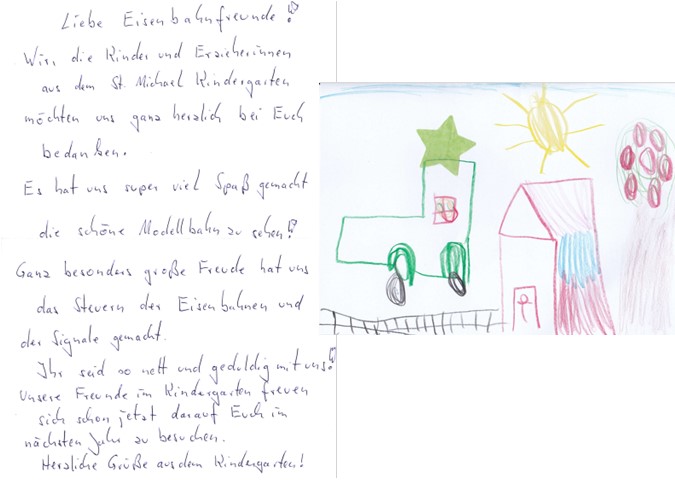 Liebe Eisenbahnfreunde!
Wir, die Kinder und Erzieherinnen
aus dem St. Michael Kindergarten
möchten uns ganz herzlich bei Euch
bedanken.
Es hat uns super viel Spaß gemacht
die schöne Modellbahn zu sehen!
Ganz besonders große Freude hat uns
das Steuern der Eisenbahnen und
der Signale gemacht.
Ihr seid so nett und geduldig mit uns!
Unsere Freunde im Kindergarten freuen
sich schon jetzt darauf Euch im
nächsten Jahr zu besuchen.
Herzliche Grüße aus dem Kindergarten!